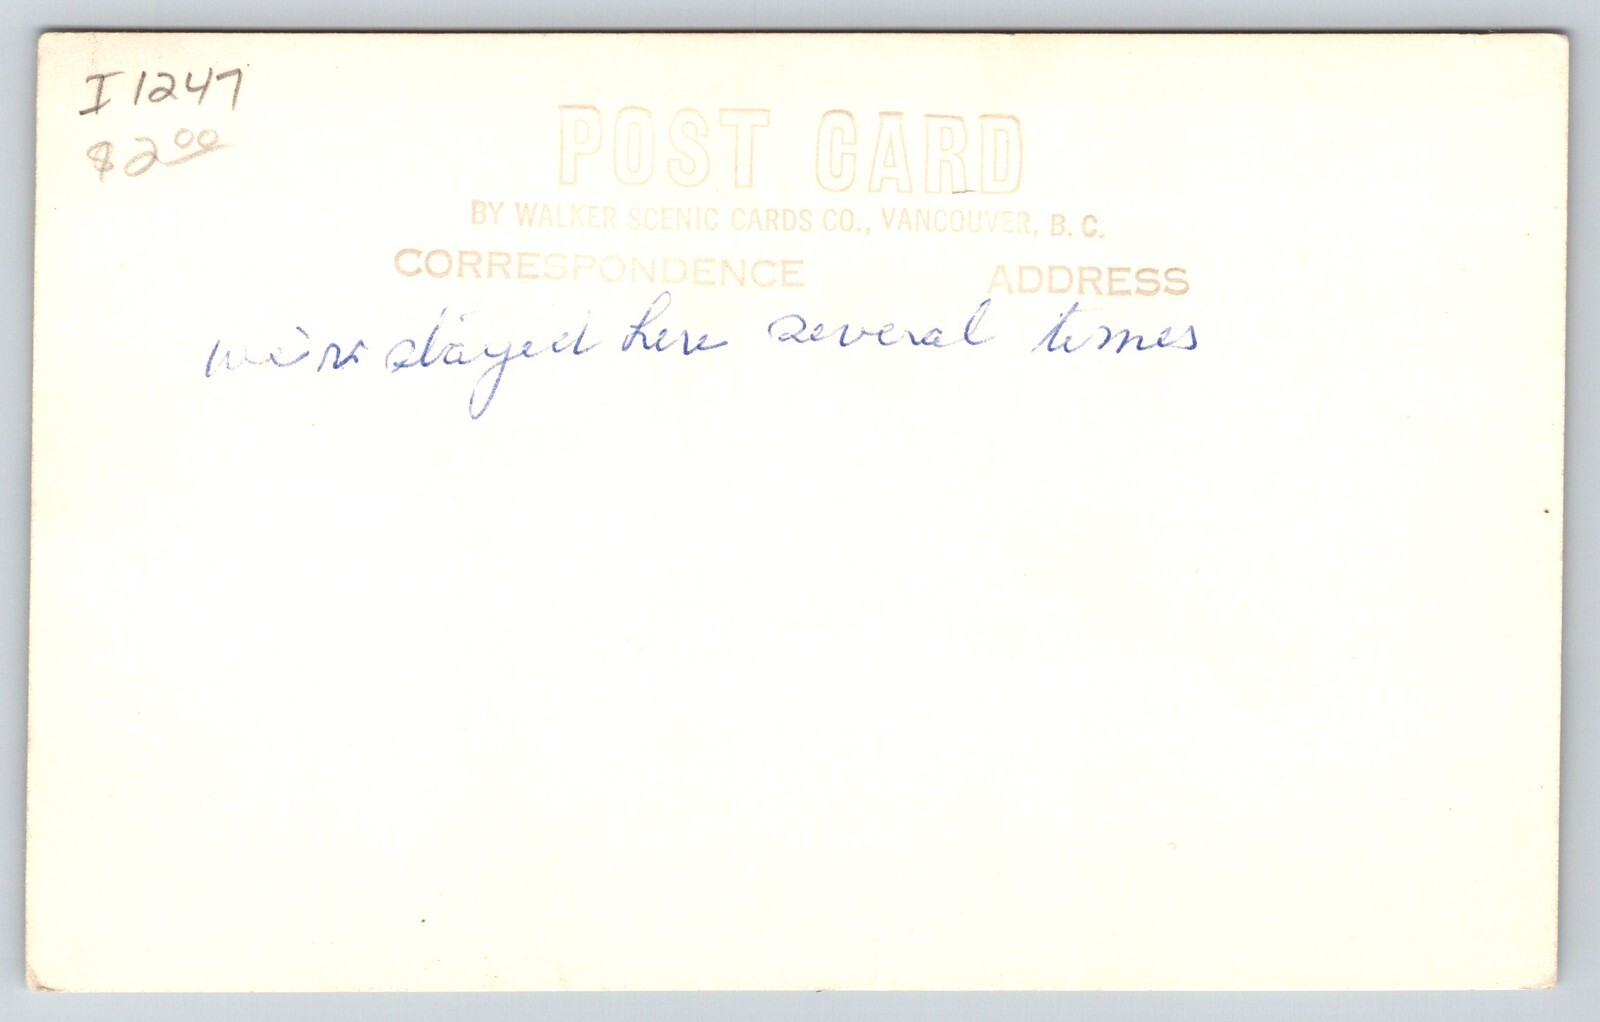 I 1247
$2.00
POST CARD
BY WALKER SCENIC CARDS CO., VANCOUVER, B. C.
CORRESPONDENCE ADDRESS
we've stayed here several times